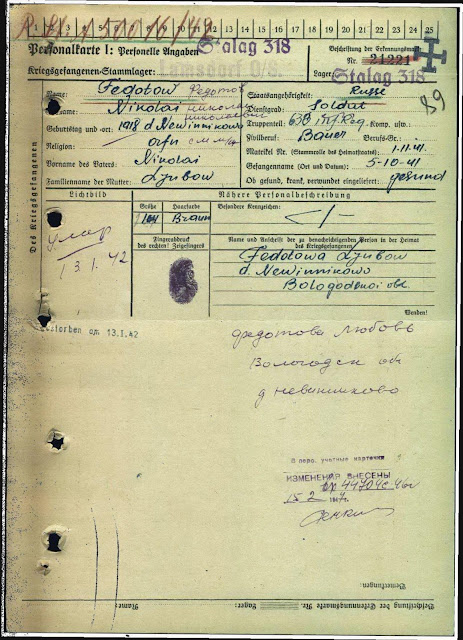 1 2 3 4 5 6 7 8 9 10 11 12 13 14 15 16 17 18 19 20 21 22 23 24 25
Stalag 318
Personalkarte I: Personelle Angaben
Beschriftung der Erkennungsmarke
Nr. 21221
Kriegsgefangenen-Stammlager: Lamsdorf O/S.
Lager: Stalag 318
89
Des Kriegsgefangenen
Name: Fedotow Федотов
Staatsangehörigkeit: Russe
Vorname: Nikolai Николай
Николаевич
Dienstgrad: Soldat
Truppenteil: 630 Inf. Reg. Komp. usw.:
Geburtstag und -ort: 1918 d. Newinnikowo
Zivilberuf: Bauer Berufs-Gr.:
Religion: orth
Matrikel Nr. (Stammrolle des Heimatstaates):
Vorname des Vaters: Nikolai
Gefangennahme (Ort und Datum): 5-10-41
Familienname der Mutter: Ljubow
Ob gesund, krank, verwundet eingeliefert: gesund
Lichtbild
Nähere Personalbeschreibung
Größe
Haarfarbe
Besondere Kennzeichen:
Braun
Fingerabdruck
des rechten! Zeigefingers
Name und Anschrift der zu benachrichtigenden Person in der Heimat
des Kriegsgefangenen
умер
13.1.42
Fedotowa Ljubow
d. Newinnikowo
Wenden!
storben am 13.1.42
Федотова Любовь
Вологодск об
д Невинниково
В перс. учетные карточки
ИЗМЕНЕНИЯ ВНЕСЕНЫ
15 2
Bemerkungen:
Beschriftung der Erkennungsmarke Nr.
Lager:
Name: